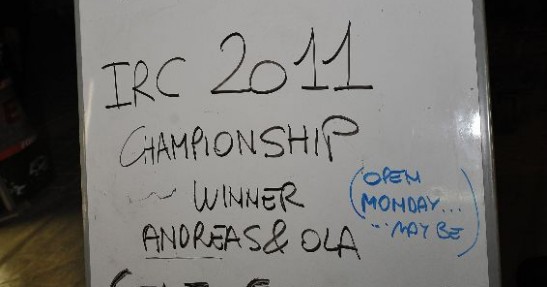 IRC 2011
CHAMPIONSHIP
~ WINNER
ANDREAS & OLA
(OPEN
MONDAY...
...MAY BE)